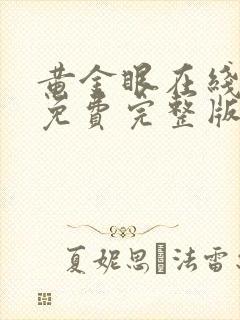 黄金眼在线
免費完整版
夏妮思 法雷